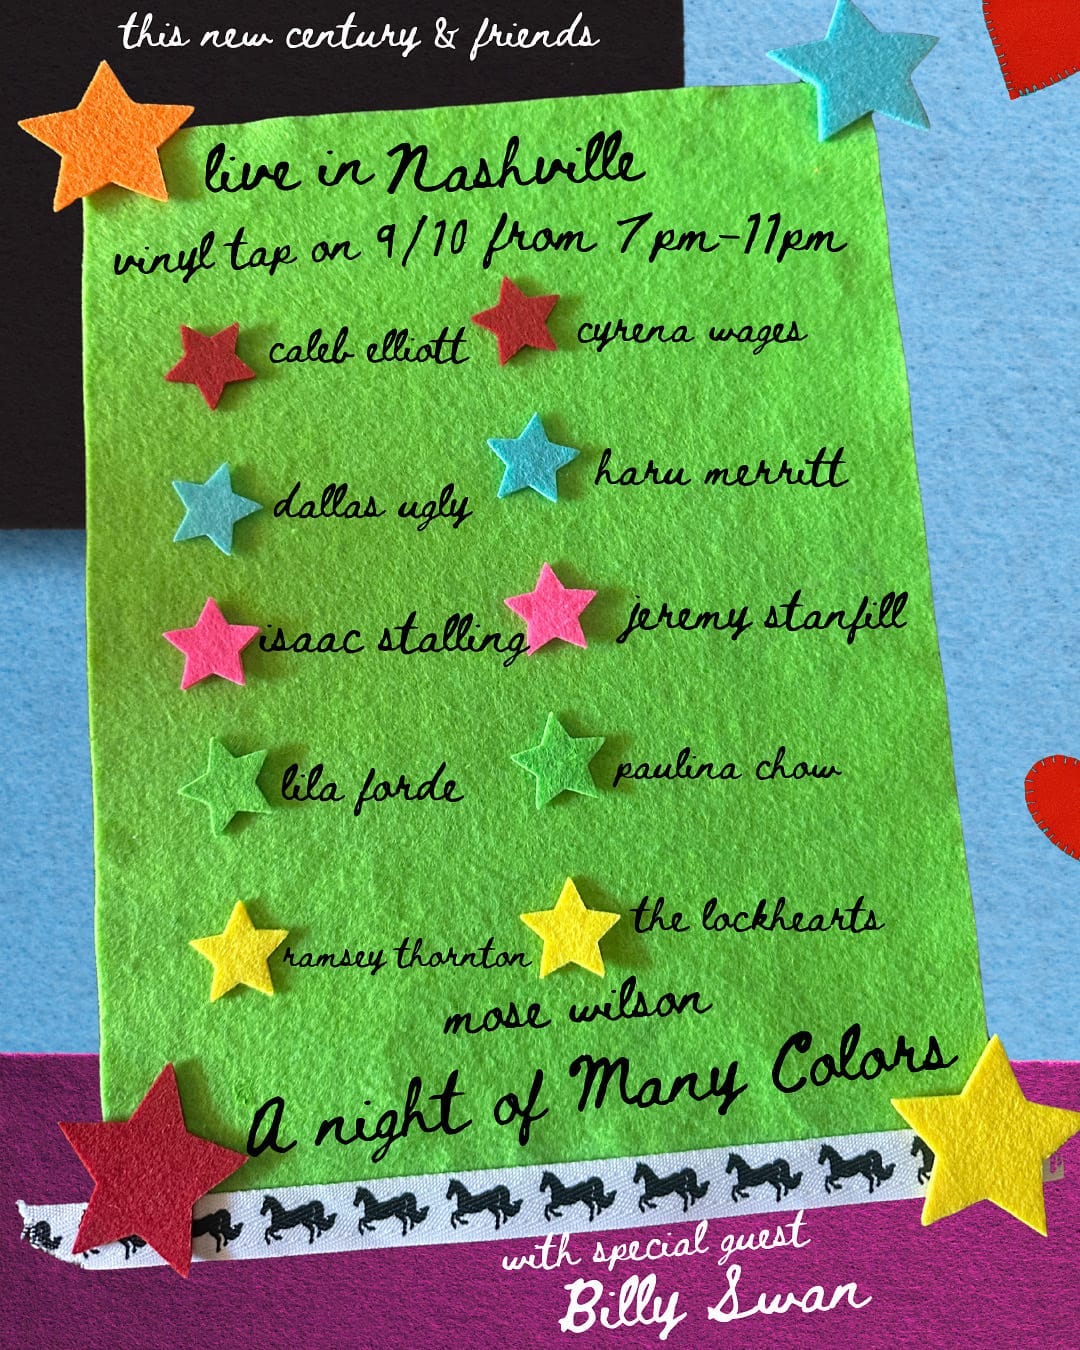 this new century & friends
live in Nashville
vinyl tap on 9/10 from 7pm-11pm
caleb elliott
cyrena wages
dallas ugly
haru merritt
isaac stalling
jeremy stanfill
lila forde
paulina chow
ramsey thornton
the lockhearts
mose wilson
A night of Many Colors
with special guest
Billy Swan